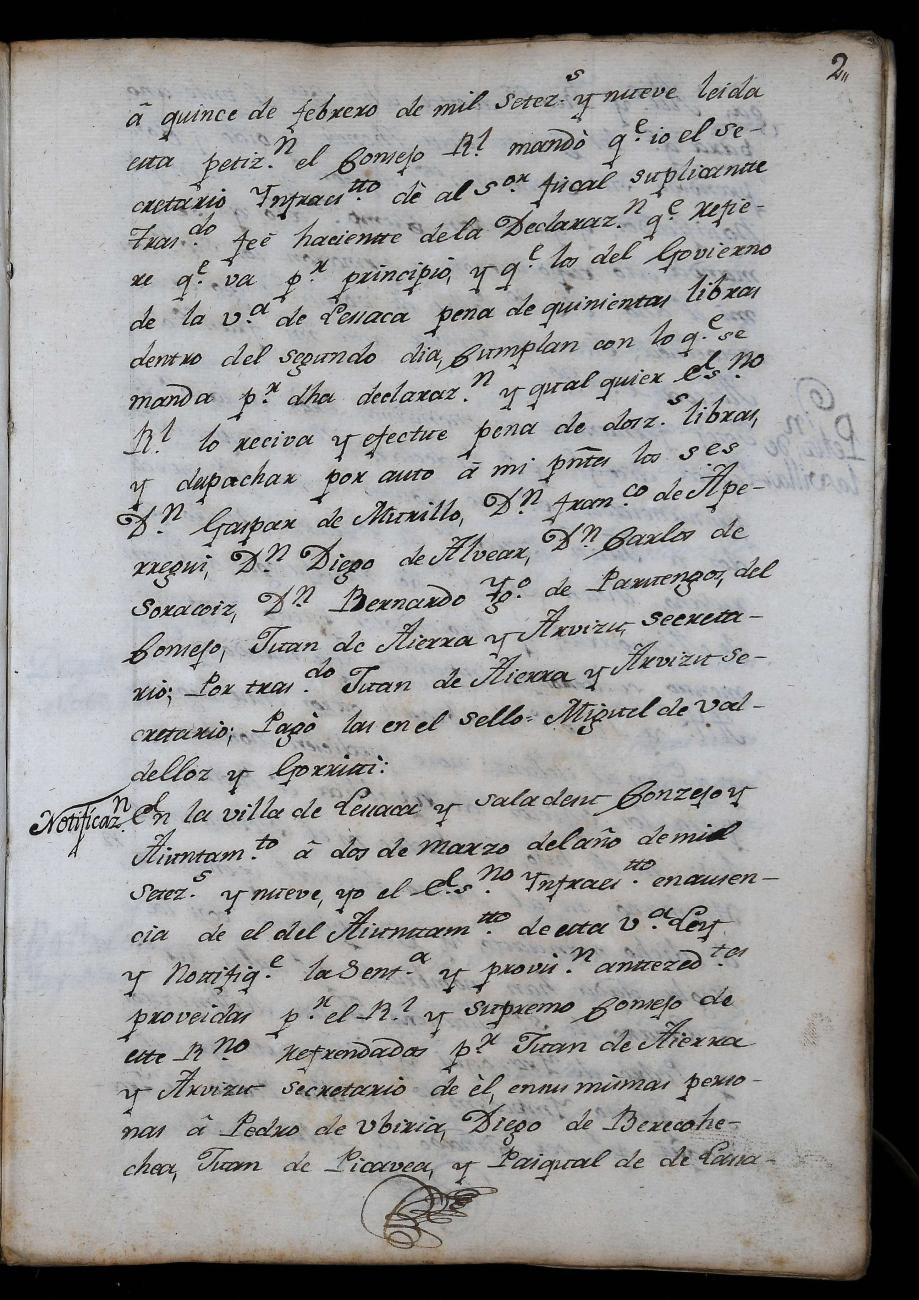 2
â quince de febrero de mil setez.s y nueve leida
esta petiz.n el Consejo R.l mandò q.e io el se-
cretario Ynfraes.tto dè al s.or fiscal suplicantte
tras.do feê hacientte de la Declaraz.n q.e refie-
re q.e va p.r principio, y q.e los del Govierno
de la v.a de Lesaca pena de quinientas libras
dentro del segundo dia, Cumplan con lo q.e se
manda p.r dha declaraz.n y qual quier Es.no
R.l lo reciva y efectue pena de doz.s libras,
y despachar por auto â mi pñtes los ses
D.n Gaspar de Murillo, D.n fran.co de Ape-
rregui, D.n Diego de Alvear, D.n Carlos de
Soracoiz, D.n Bernardo Yg.o de Parutengos, del
Consejo, Juan de Aierra y Arvizu, secreta-
rio; Por tras.do Juan de Aierra y Arvizu se-
cretario; Pagò las en el sello= Miguel de Val-
delloz y Gorritti:
Notificaz.n
En la villa de Lesaca y sala de su Conzejo y
Aiuntam.to â dos de Marzo del año de mil
setez.s y nueve, yo el Es.no Ynfraes.tto en ausen-
cia de el del Aiuntam.tto de esta v.a Ley
y Nottifiq.e la Sent.a y provis.n anttezed.tes
proveidas p.r el R.l y supremo Consejo de
este R.no refrendados p.r Juan de Aierra
y Arvizu secretario de èl, en sus mismas perso-
nas â Pedro de Vbiria, Diego de Berecohe-
chea, Juan de Picavea, y Pasqual de de Lasa-